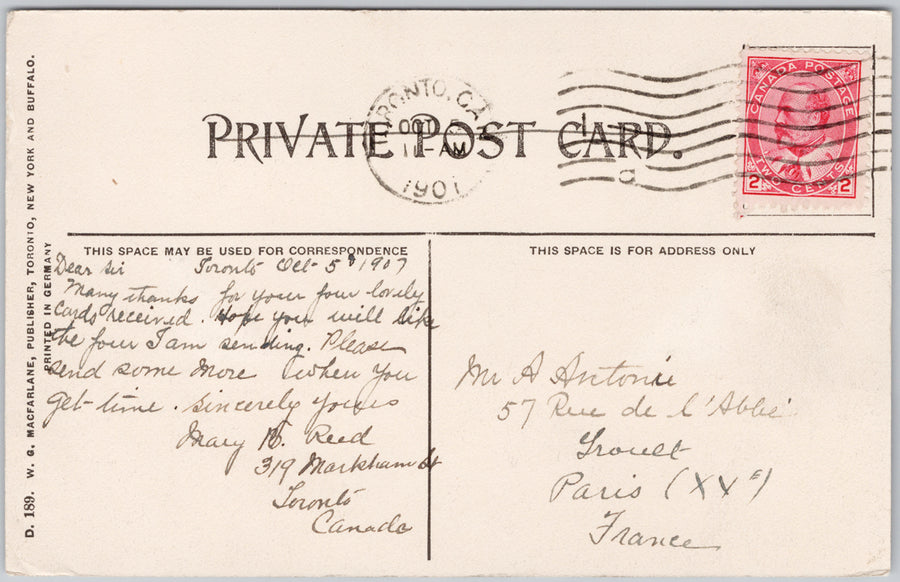 PRIVATE POST CARD.
TORONTO, CA
OCT 5
AM
1907
CANADA POSTAGE
TWO CENTS
2 2
THIS SPACE MAY BE USED FOR CORRESPONDENCE
THIS SPACE IS FOR ADDRESS ONLY
Dear Sir Toronto Oct 5th 1907
Many thanks for your four lovely
Cards received. Hope you will like
the four I am sending. Please
send some more when you
get time. Sincerely yours
Mary B. Reed
319 Markham St
Toronto
Canada
Mr A Antonie
57 Rue de l'Abbé
Groult
Paris (XVe)
France
D. 189. W. G. MACFARLANE, PUBLISHER, TORONTO, NEW YORK AND BUFFALO.
PRINTED IN GERMANY